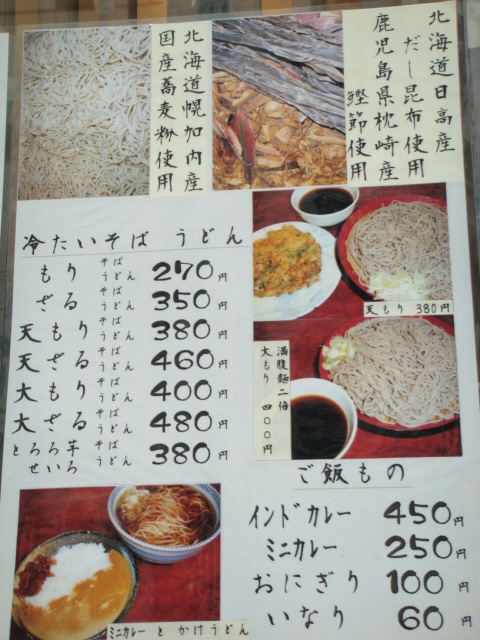 北海道日高産
だし昆布使用
鹿児島県枕崎産
鰹節使用
北海道幌加内産
国産蕎麦粉使用
冷たいそば うどん
もり そば うどん 270円
ざる そば うどん 350円
天もり そば うどん 380円
天ざる そば うどん 460円
大もり そば うどん 400円
大ざる そば うどん 480円
とろろ芋せいろ そば うどん 380円
天もり 380円
満腹麺二倍
大もり 四00円
ご飯もの
インドカレー 450円
ミニカレー 250円
おにぎり 100円
いなり 60円
ミニカレー と かけうどん